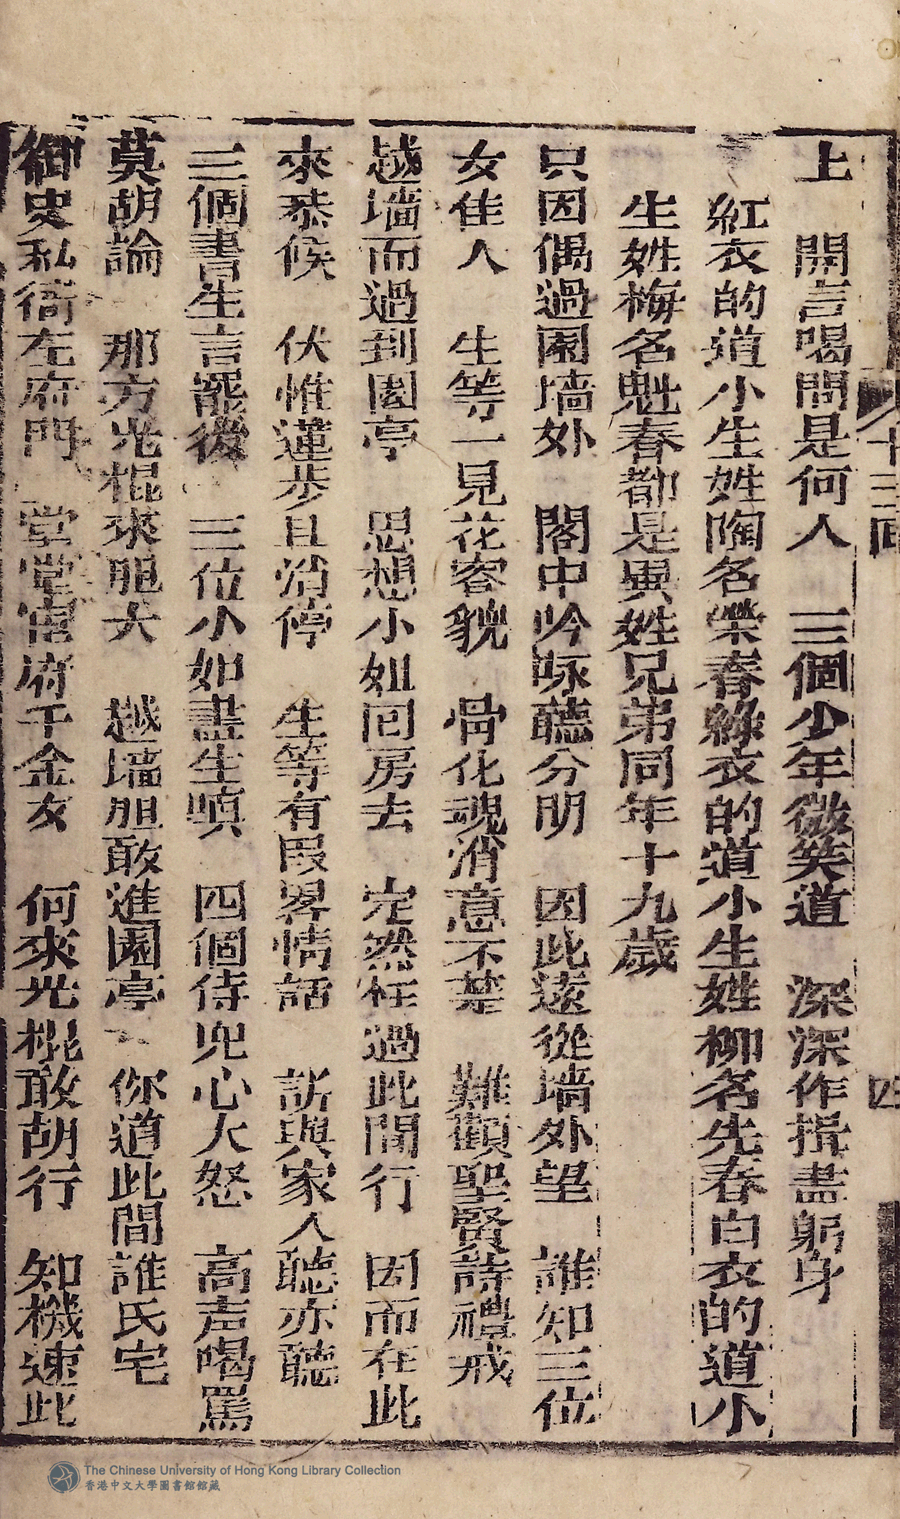 上　開言喝問是何人　三個少年微笑道　深深作揖盡躬身
紅衣的道小生姓陶名榮春綠衣的道小生姓柳名先春白衣的道小
生姓梅名魁春都是異姓兄弟同年十九歲
只因偶過園墻外　閣中吟咏聽分明　因此遠從墻外望　誰知三位
女佳人　生等一見花容貌　骨化魂消意不禁　難顧聖賢詩禮戒
越墻而過到園亭　思想小姐回房去　定然徃過此間行　因而在此
來恭候　伏惟蓮步且消停　生等有叚畧情話　訴與家人聽亦聽
三個書生言罷後　三位小如盡生嗔　四個侍兒心大怒　高声喝罵
莫胡論　那方光棍來胆大　越墻胆敢進園亭　你道此間誰氏宅
御史私衙左府門　堂堂官府千金女　何來光棍敢胡行　知機速此
十三回
四
The Chinese University of Hong Kong Library Collection
香港中文大學圖書館館藏